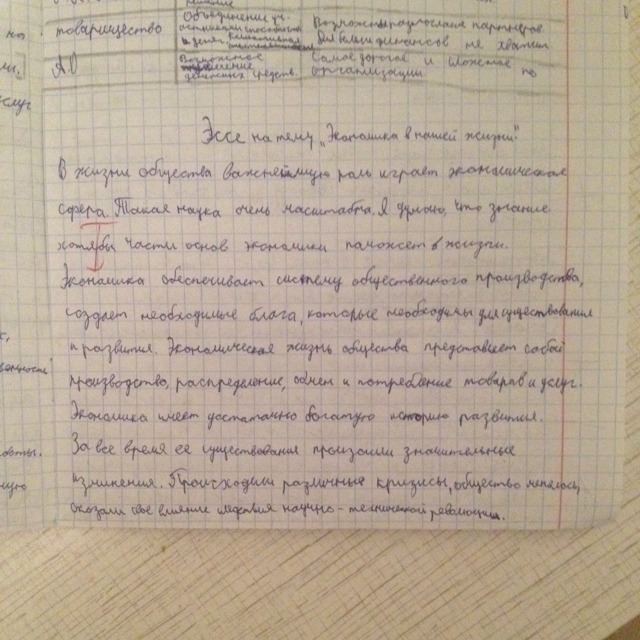 товарищество
Объединение
Возможны разногласия партнёров
или больших финансов не хватит
АО
Возможное
денежных средств.
Самое дорогое и сложное по
организации
услуг
Эссе на тему „Экономика в нашей жизни"
В жизни общества важнейшую роль играет экономическая
сфера. Такая наука очень масштабна. Я думаю, что знание
хотябы части основ экономики поможет в жизни.
Экономика обеспечивает систему общественного производства,
создает необходимые блага, которые необходимы для существования
и развития. Экономическая жизнь общества представляет собой
производство, распределение, обмен и потребление товаров и услуг.
Экономика имеет достаточно богатую историю развития.
За все время ее существования произошли значительные
изминения. Происходили различные кризисы, общество менялось,
оказали свое влияние мировая научно-технической революции.